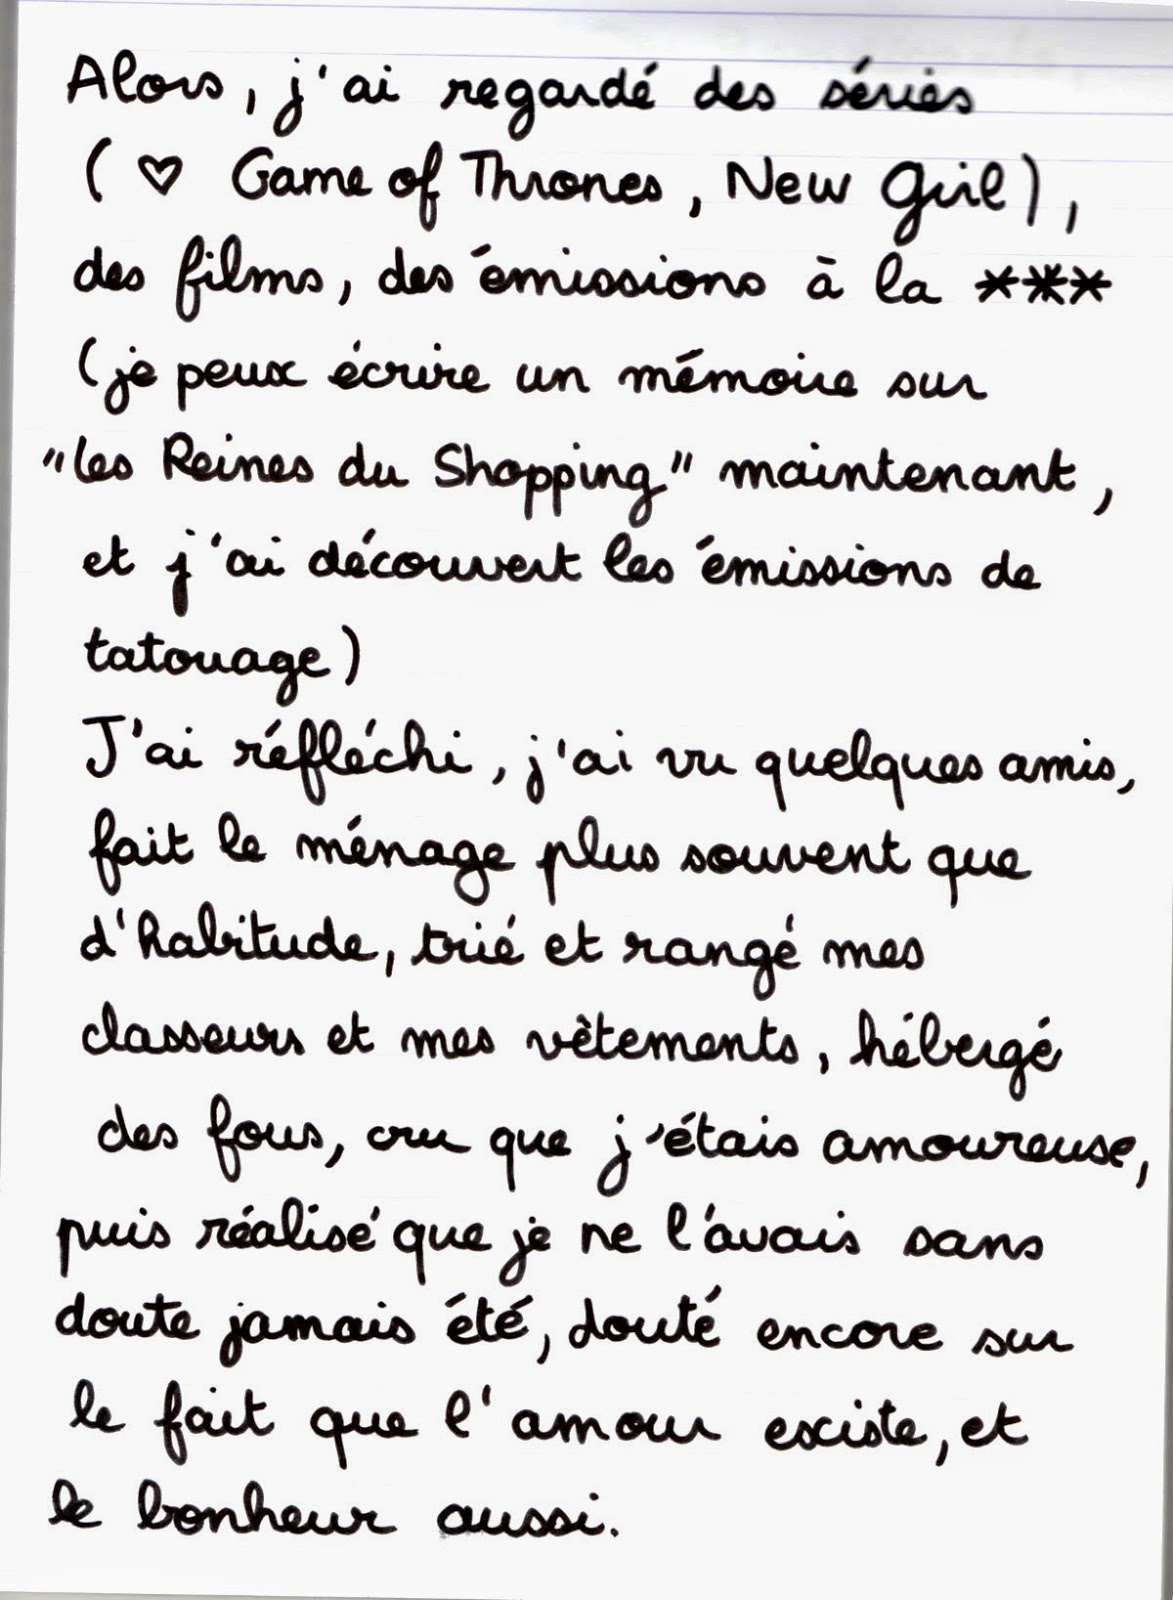 Alors, j'ai regardé des séries
( ♡ Game of Thrones, New Girl),
des films, des émissions à la ***
(je peux écrire un mémoire sur
"les Reines du Shopping" maintenant,
et j'ai découvert les émissions de
tatouage)
J'ai réfléchi, j'ai vu quelques amis,
fait le ménage plus souvent que
d'habitude, trié et rangé mes
classeurs et mes vètements, hébergé
des fous, cru que j'étais amoureuse,
puis réalisé que je ne l'avais sans
doute jamais été, douté encore sur
le fait que l'amour existe, et
le bonheur aussi.